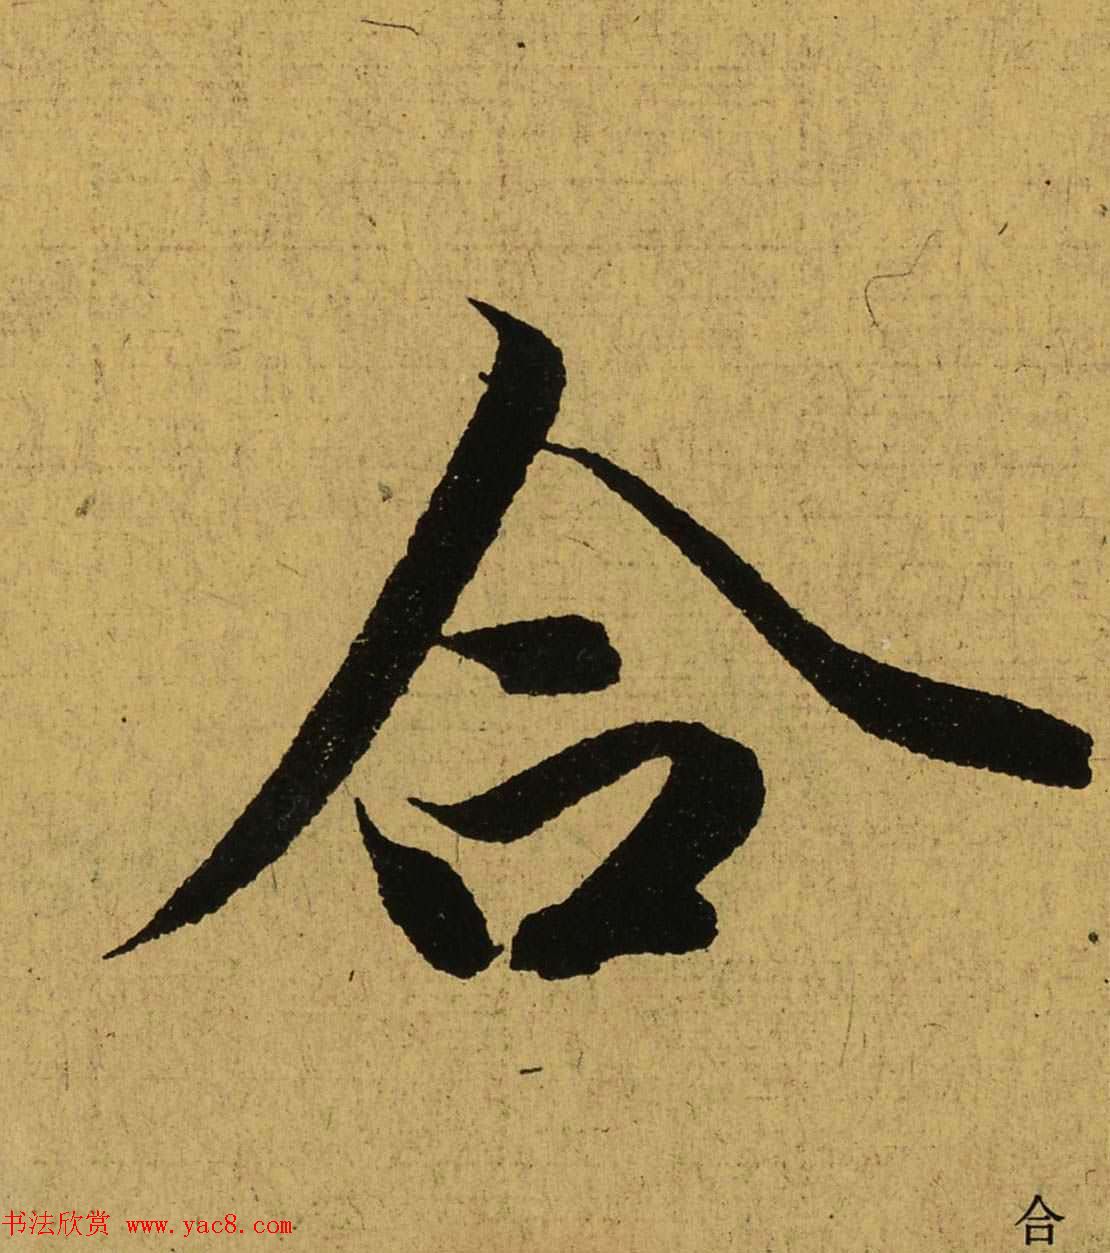 合
书法欣赏 www.yac8.com
合